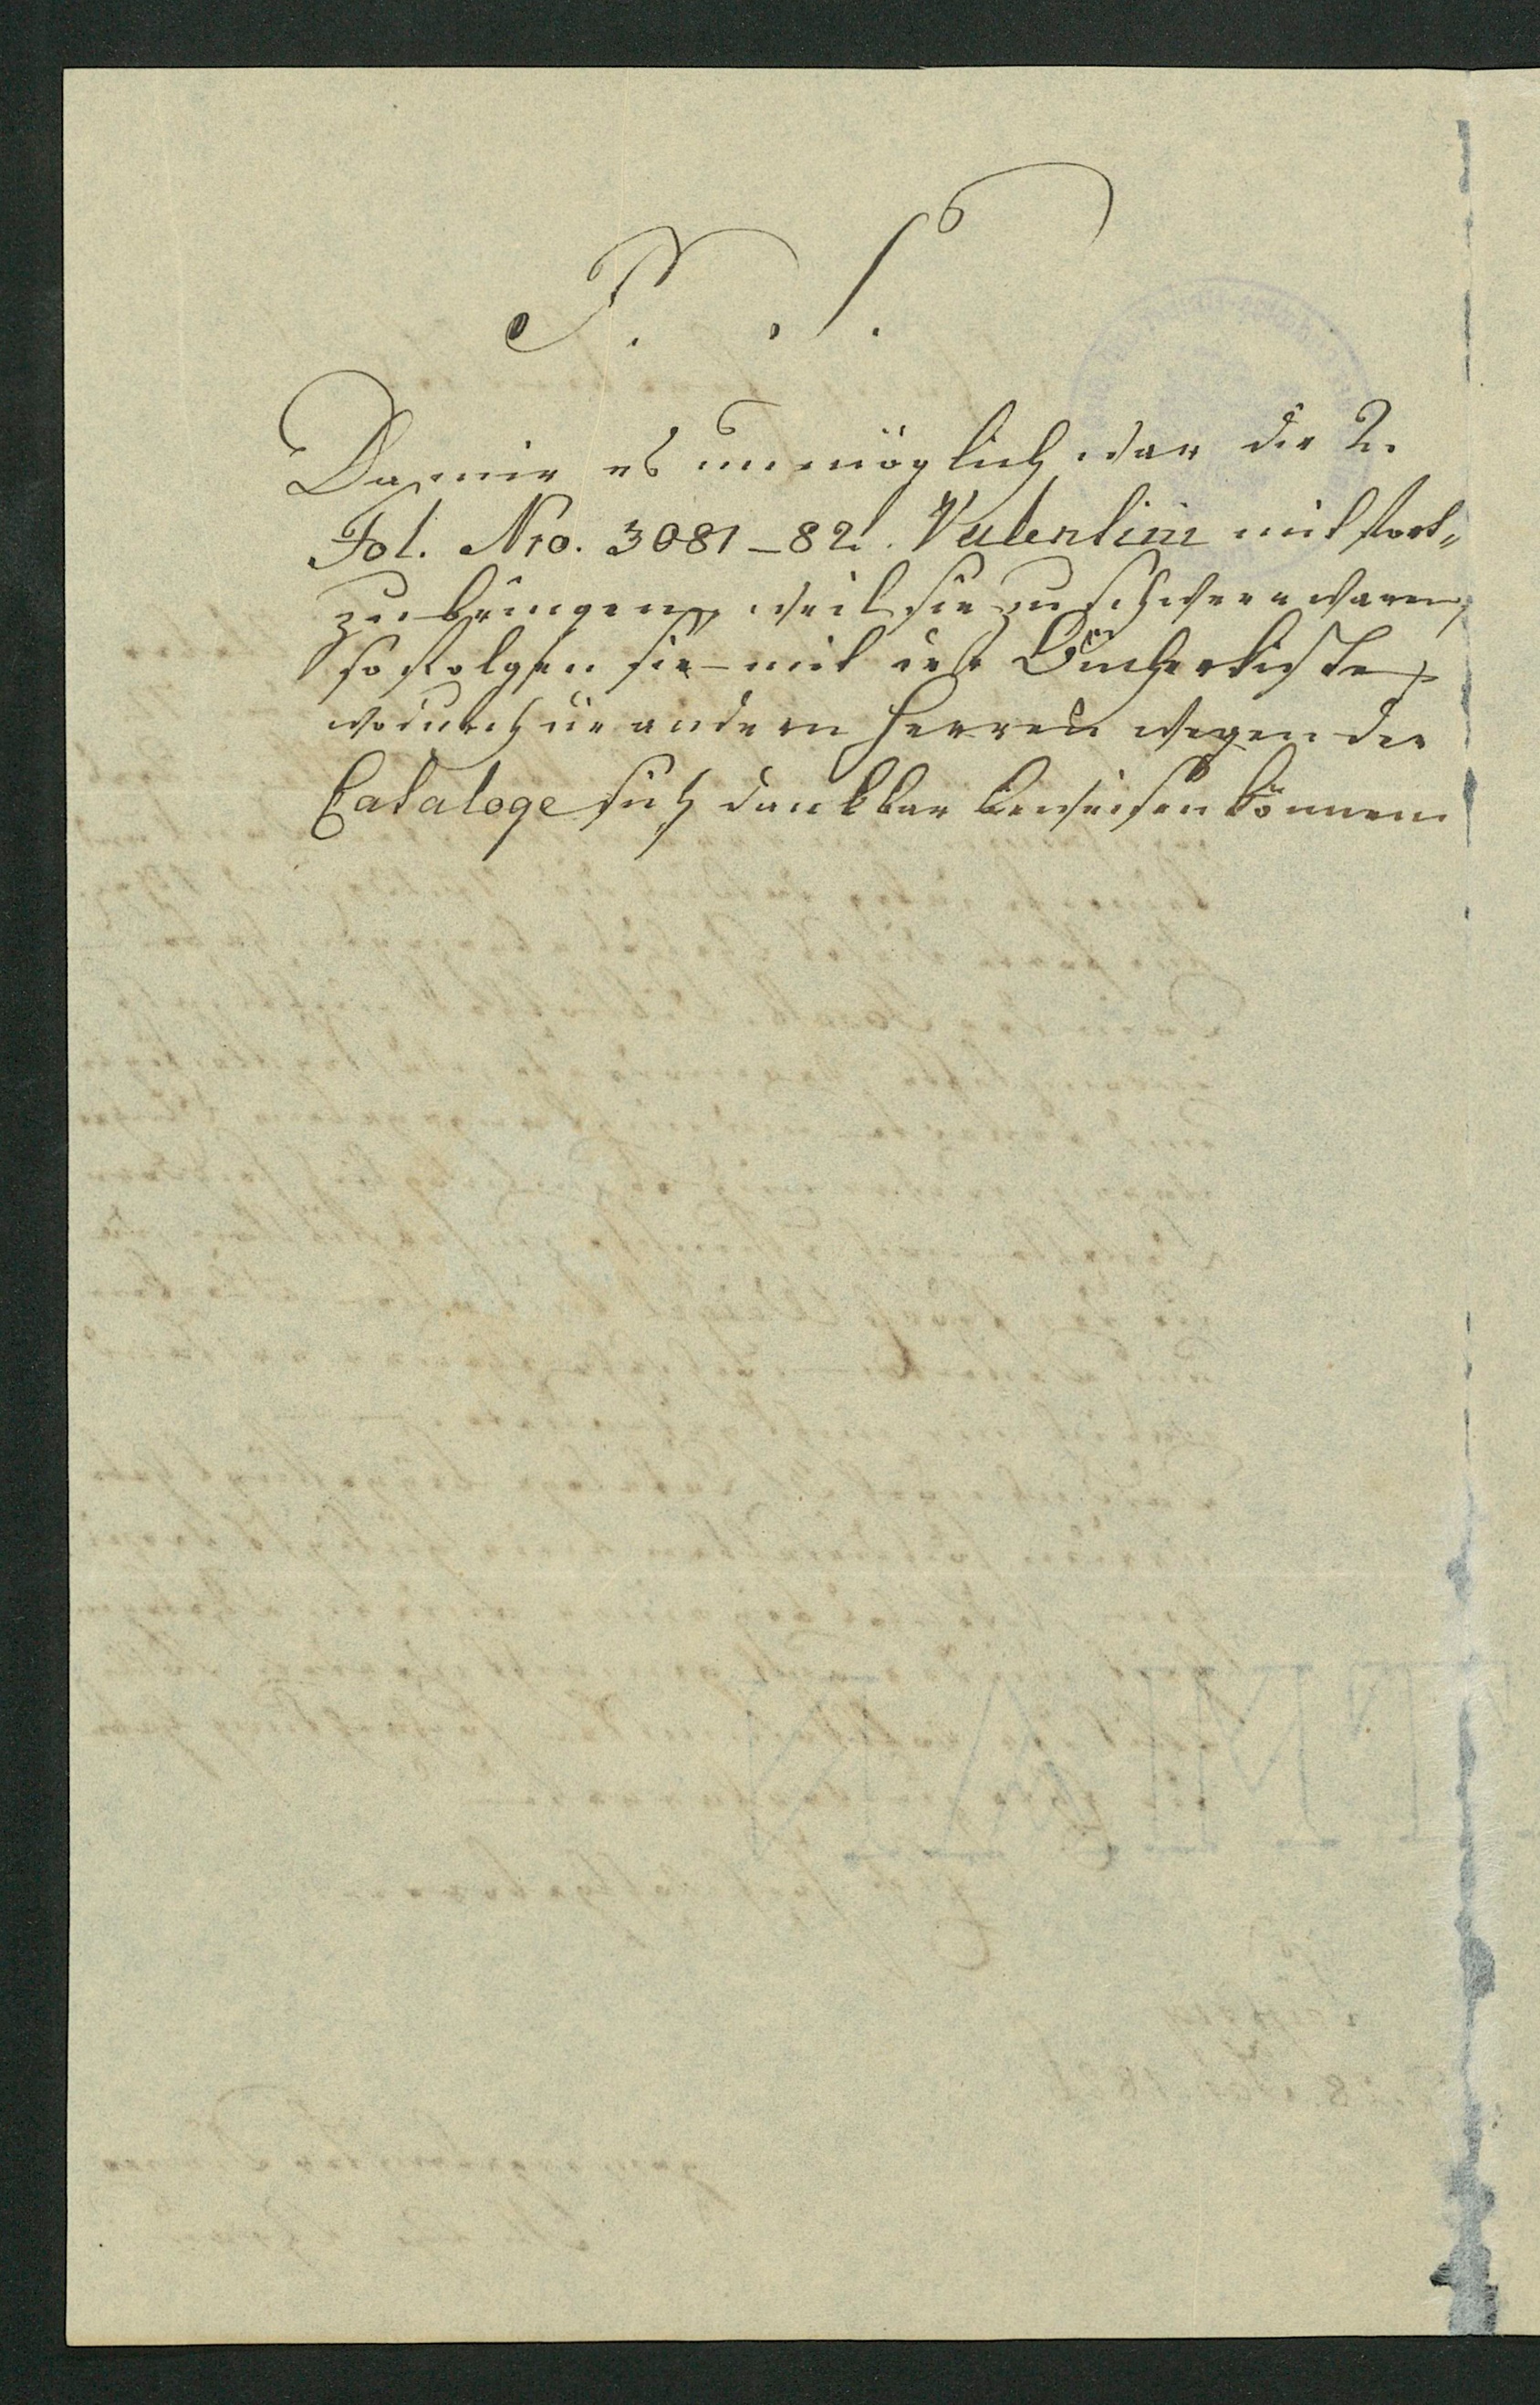 P. S.
Da mir es unmöglich war die 2.
Fol. Nro. 3081–82. Valentini mit fort„
zubringen, weil sie zu schwer waren,
so folgen sie mit der Bücherkiste,
wodurch die andern Herren wegen der
Cataloge sich dankbar beweisen können